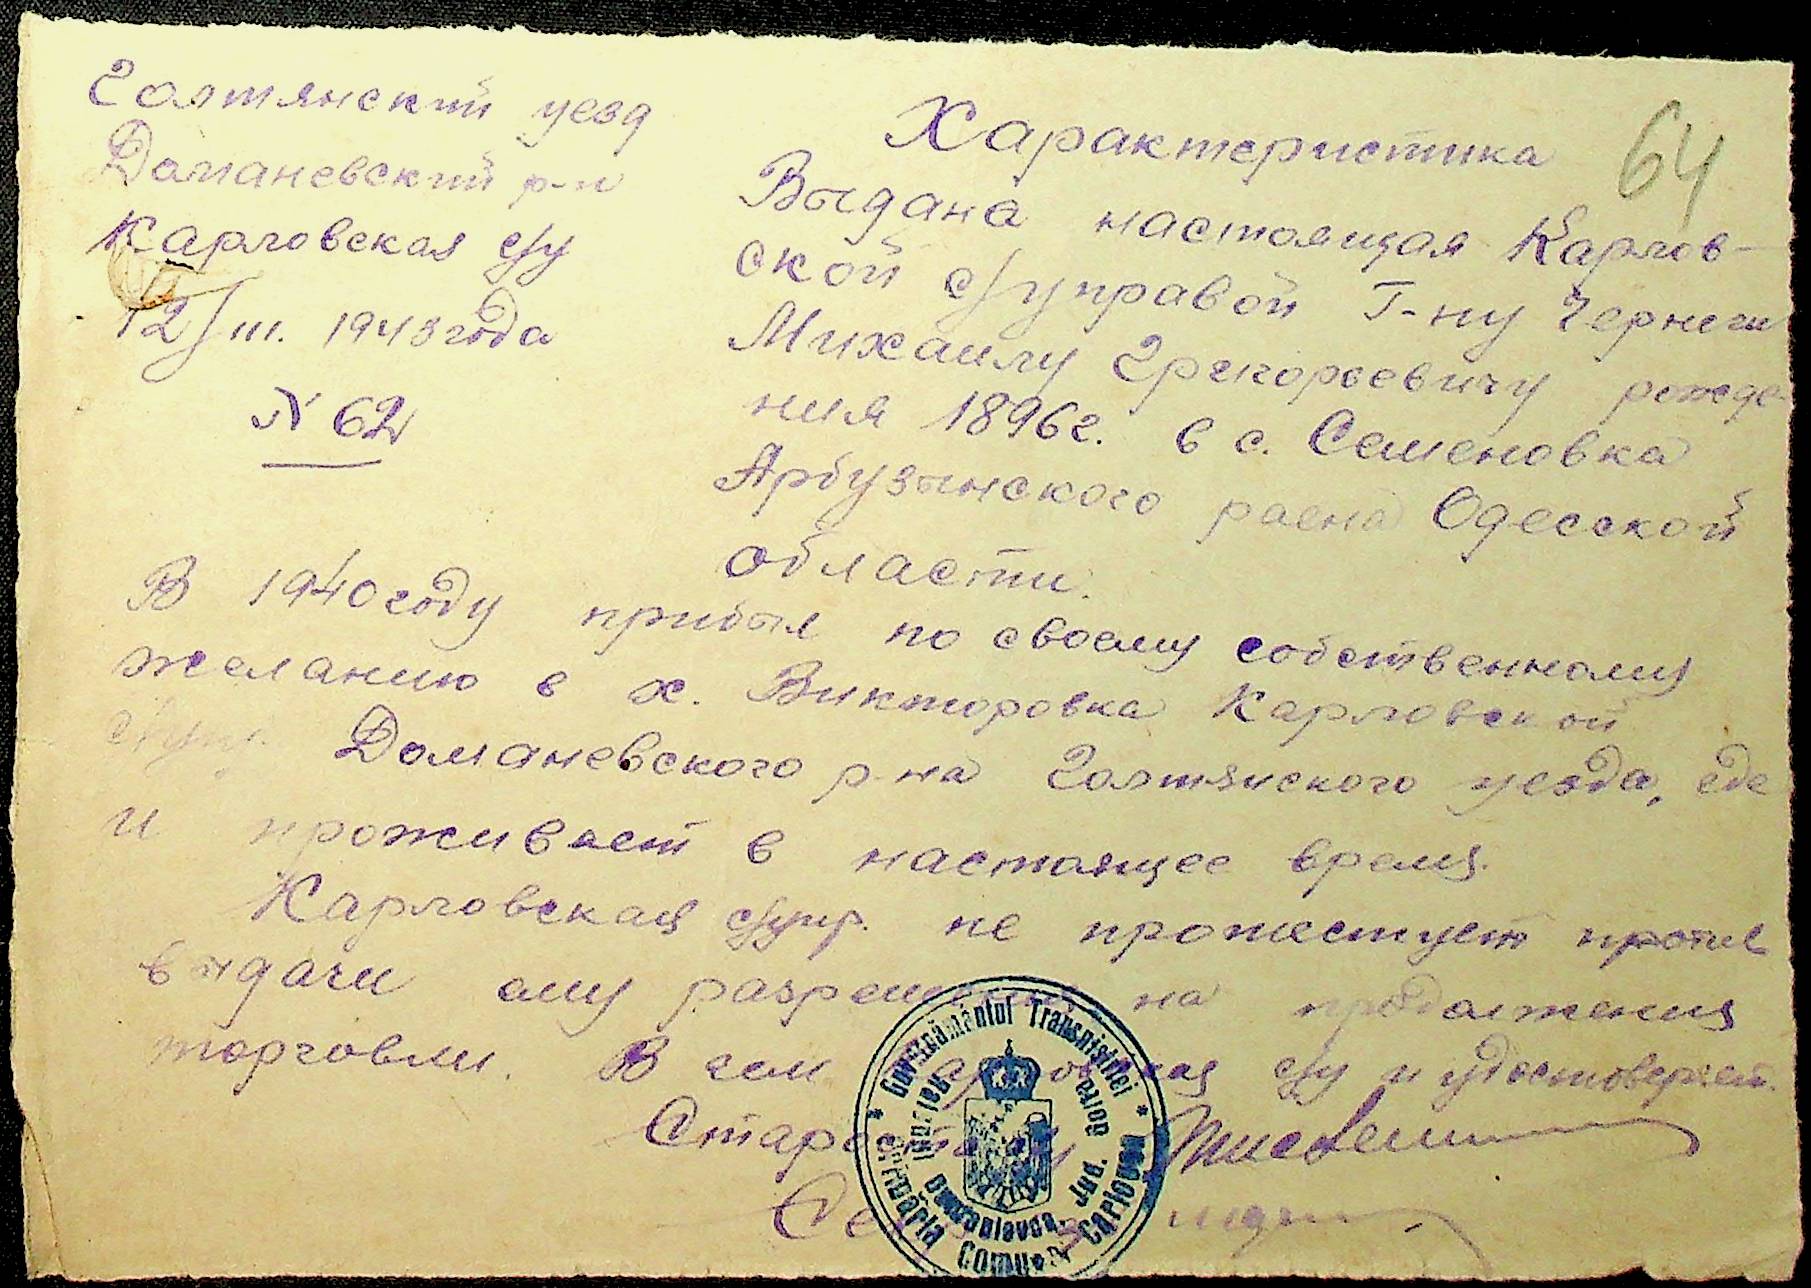 Голтянский уезд
Доманевский р-н
Карловская с/у
12/III. 1943 года
N 62
64
Характеристика
Выдана настоящая Карлов-
ской с/управой Г-ну Чернеги
Михаилу Григорьевичу рожде-
ния 1896 г. в с. Семеновка
Арбузынского раена Одесской
области.
В 1940 году прибыл по своему собственному
желанию в х. Викторовка Карловской
с/упр. Доманевского р-на Голтянского уезда, где
и проживает в настоящее время.
Карловская с/упр. не протестует против
выдачи ему разрешения на продолжения
торговли. В чем Карловская с/у и удостоверяет.
Староста
Guvernământul Transnistriei
Primăria Comunei Carlovca
Raionul Domaniovca, Jud. Golta